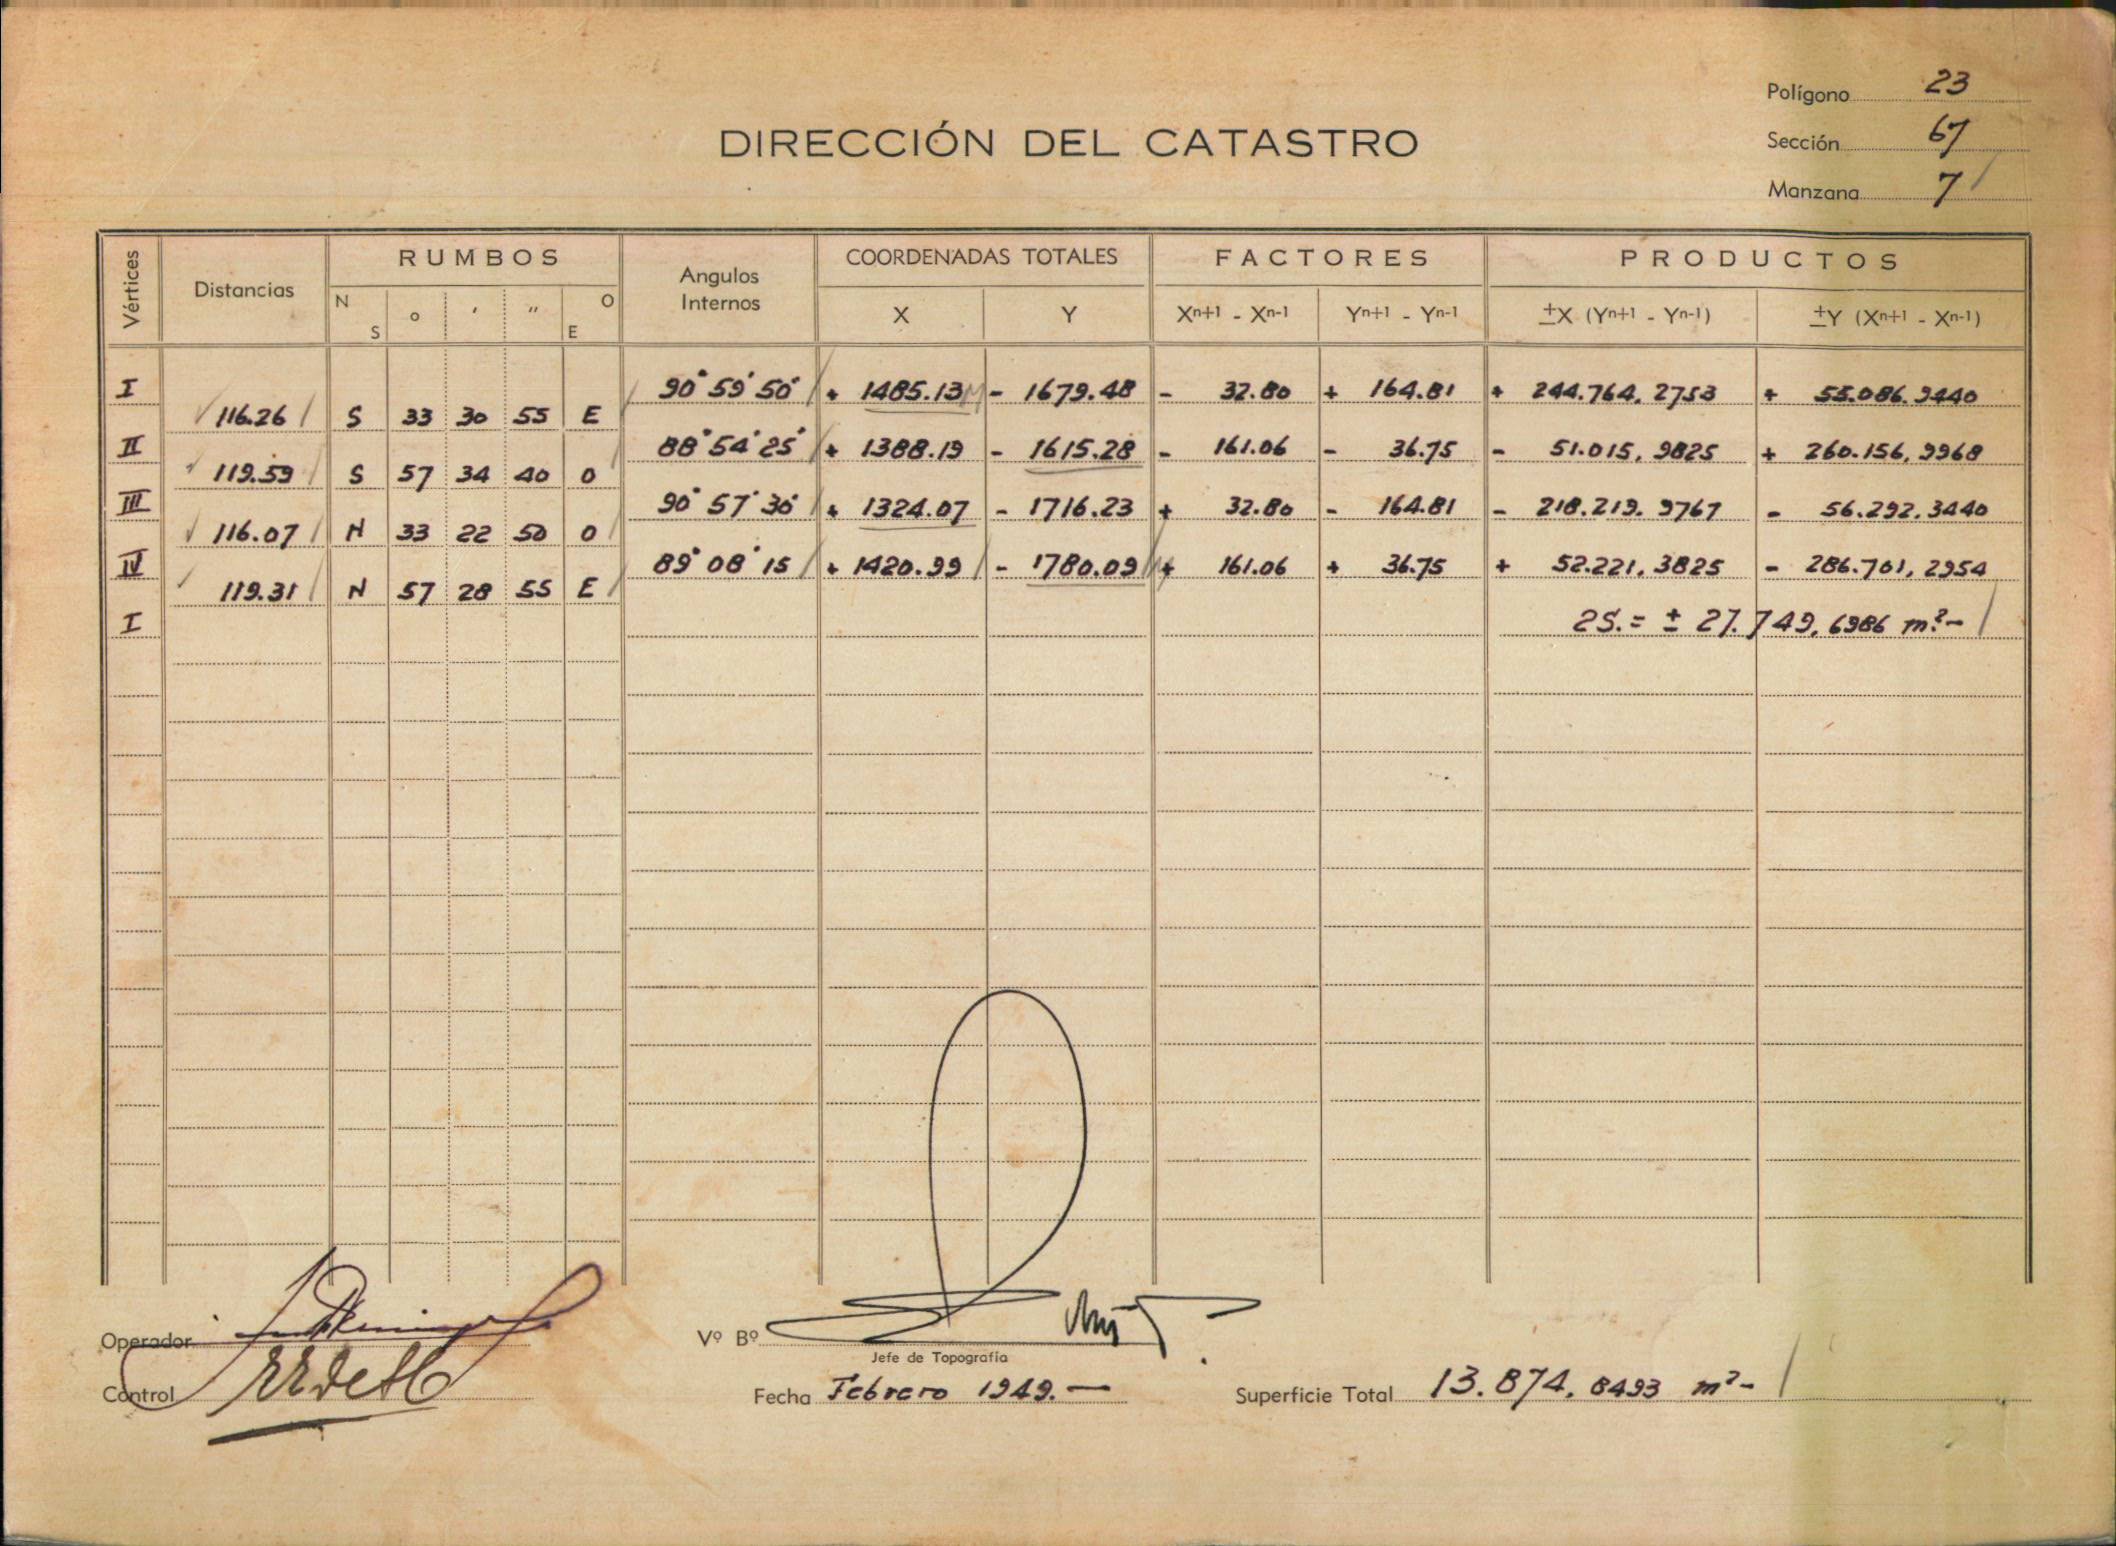 Polígono 23
DIRECCIÓN DEL CATASTRO
Sección 67
Manzana 7
Vértices Distancias RUMBOS Angulos Internos COORDENADAS TOTALES FACTORES PRODUCTOS
N S ° ′ ″ O E X Y Xn+1 - Xn-1 Yn+1 - Yn-1 ±X (Yn+1 - Yn-1) ±Y (Xn+1 - Xn-1)
I 90° 59' 50" + 1485.13 - 1679.48 - 32.80 + 164.81 + 244.764,2753 + 55.086,9440
116.26 S 33 30 55 E
II 88° 54' 25" + 1388.19 - 1615.28 - 161.06 - 36.75 - 51.015,9825 + 260.156,9968
119.59 S 57 34 40 O
III 90° 57' 30" + 1324.07 - 1716.23 + 32.80 - 164.81 - 218.219,9767 - 56.292,3440
116.07 N 33 22 50 O
IV 89° 08' 15 + 1420.99 - 1780.09 + 161.06 + 36.75 + 52.221,3825 - 286.701,2954
119.31 N 57 28 55 E
I 2S.= ± 27.749,6986 m²-
Operador
Vº Bº
Jefe de Topografía
Control
Fecha Febrero 1949.—
Superficie Total 13.874,8493 m²-